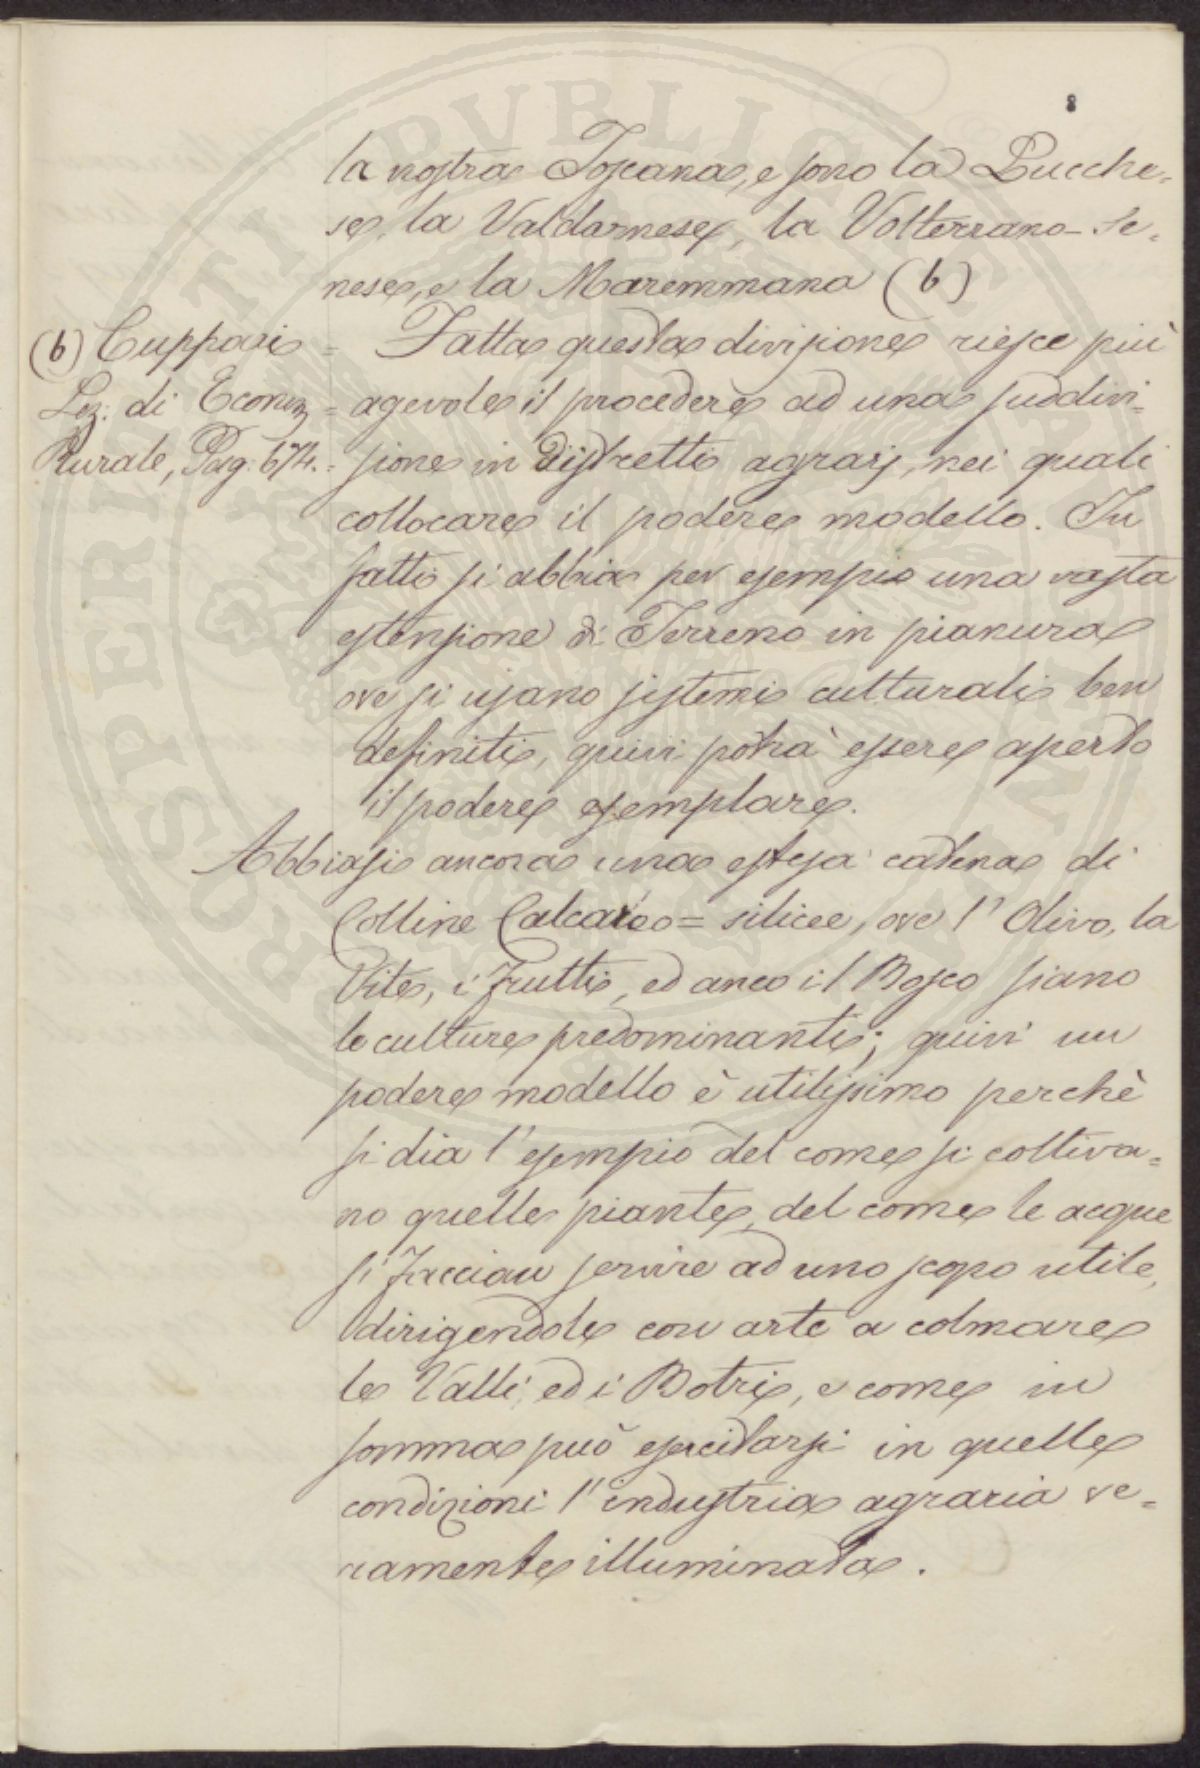 8
la nostra Toscana, e sono la Lucche=
se, la Valdarnese, la Volterrano-Se=
nese, e la Maremmana (b)
(b) Cuppari =
Lez: di Econ: =
Rurale, Pag: 674. =
Fatta questa divisione riesce più
agevole il procedere ad una suddivi=
sione in distretti agrarj, nei quali
collocare il podere modello. In
fatti si abbia per esempio una vasta
estensione di Terreno in pianura
ove si usano sistemi culturali ben
definiti, quivi potrà essere aperto
il podere esemplare.
Abbiasi ancora una estesa catena di
Colline Calcareo=silicee, ove l' Olivo, la
Vite, i frutti, ed anco il Bosco siano
le culture predominanti; quivi un
podere modello è utilissimo perchè
si dia l'esempio del come si coltiva=
no quelle piante, del come le acque
si faccian servire ad uno scopo utile,
dirigendole con arte a colmare
le Valli, ed i Botri, e come in
somma può esercitarsi in quelle
condizioni l'industria agraria ve=
ramente illuminata.
SPERITI PVBLICE